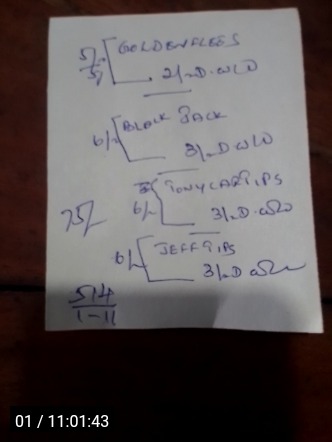 5/. GOLDENFLEES
5/. 2/.D.WLD
6/. BLACK JACK
3/.D WLD
6/. TONYCARTIPS
75/ 3/.D.WLD
6/. JEFFTIPS
3/.D WLD
514
1-11
01 / 11:01:43